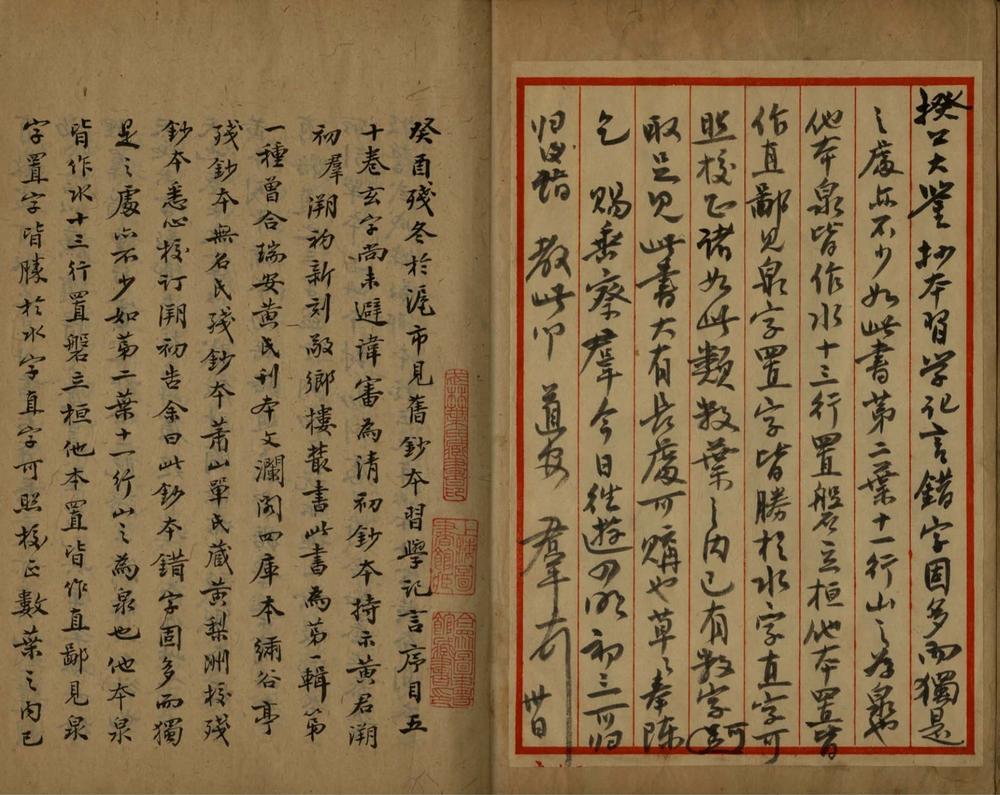 揆公大鉴抄本習学记言錯字固多而獨是
之處亦不少如此書第二葉十一行山之為泉也
他本泉皆作水十三行置磐石立桓他本置皆
作直鄙見泉字置字皆勝於水字直字可
照校正諸如此類数葉之内已有数字可
取足見此書大有長處可購也草之奉陳
乞賜垂察羣今日往遊初三可归
归後 教此叩道安羣
癸酉残冬於滬市見舊鈔本習學記言序目五
十巻玄字尚未避諱審為清初鈔本持示黄君溯
初羣溯初新刻敬鄉樓叢書此書為第一輯第
一種曾合瑞安黄氏刊本文瀾閣四庫本繡谷亭
残鈔本無名氏残鈔本蕭山單氏藏黄梨洲校残
鈔本悉心校訂溯初告余曰此鈔本錯字固多而獨
是之處亦不少如第二葉十一行山之為泉也他本泉
皆作水十三行置磐立桓他本置皆作直鄙見泉
字置字皆勝於水字直字可照校正數葉之内已